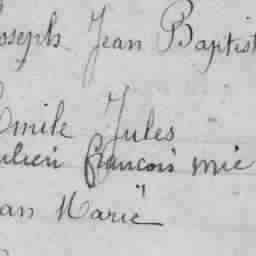 Joseph Jean Baptist
Emile Jules
ulien françois mie
"
an Marie